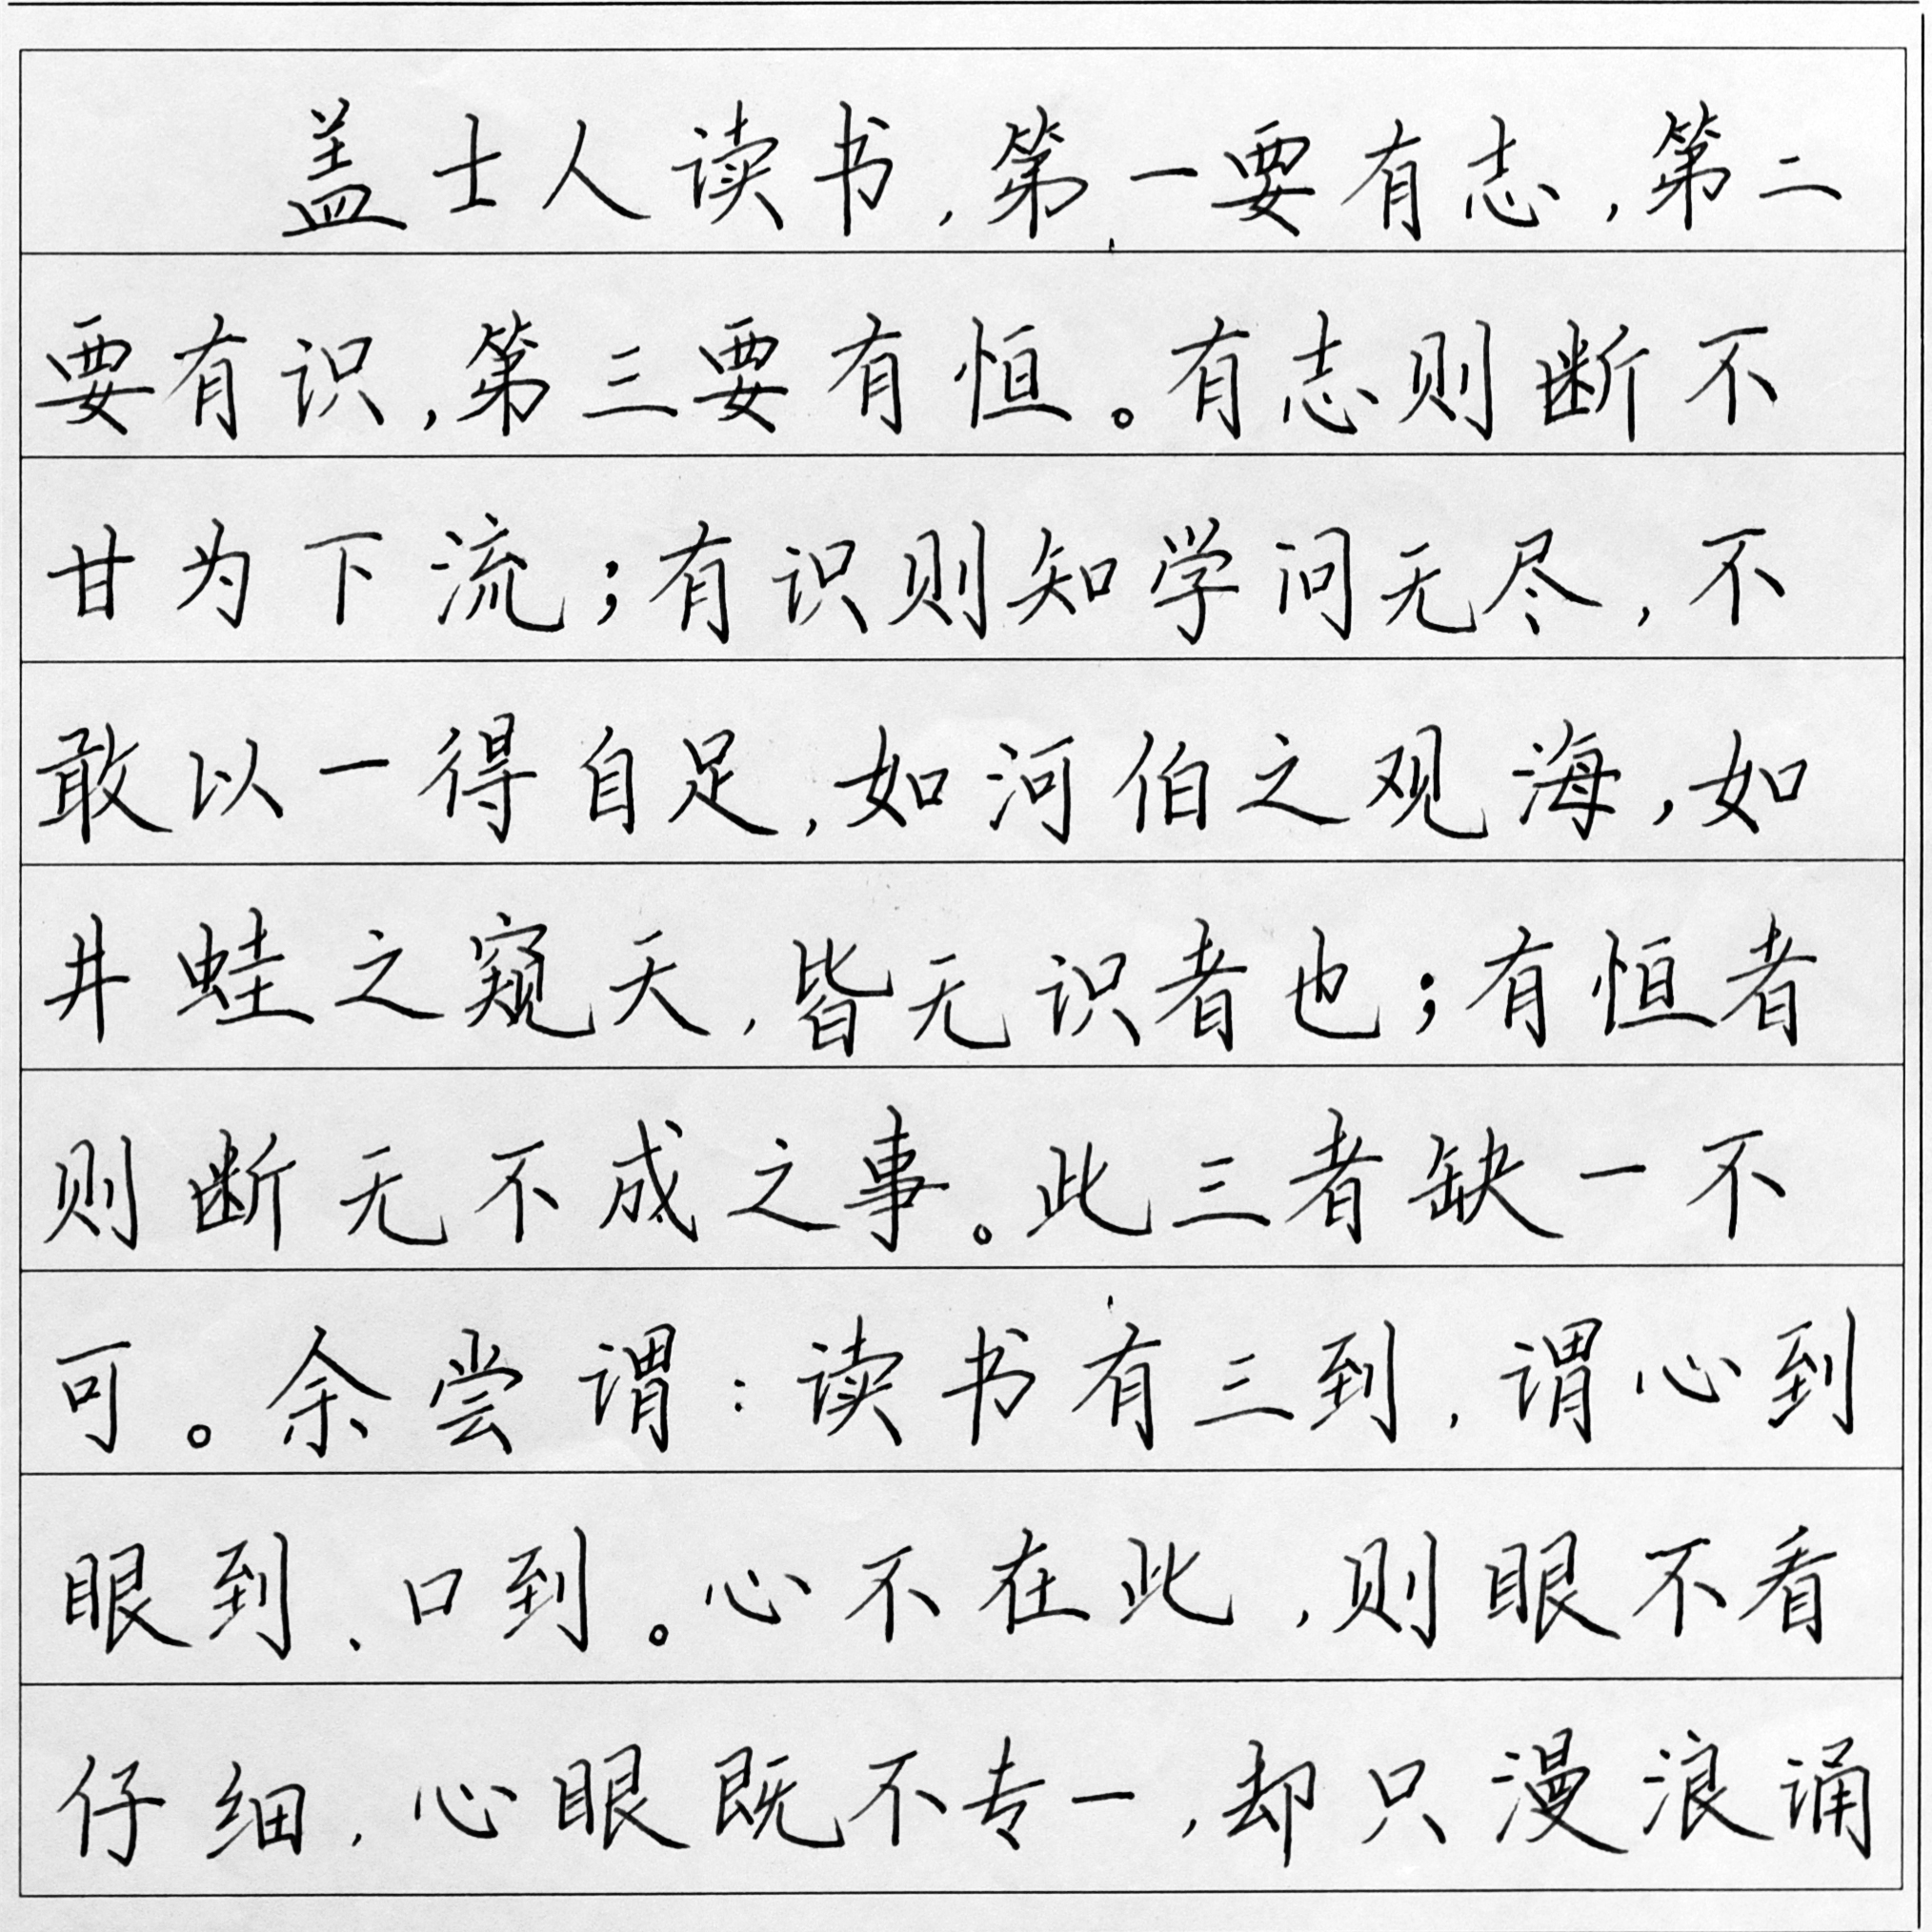 盖士人读书,第一要有志,第二
要有识,第三要有恒。有志则断不
甘为下流;有识则知学问无尽,不
敢以一得自足,如河伯之观海,如
井蛙之窥天,皆无识者也;有恒者
则断无不成之事。此三者缺一不
可。余尝谓:读书有三到,谓心到
眼到、口到。心不在此,则眼不看
仔细,心眼既不专一,却只漫浪诵